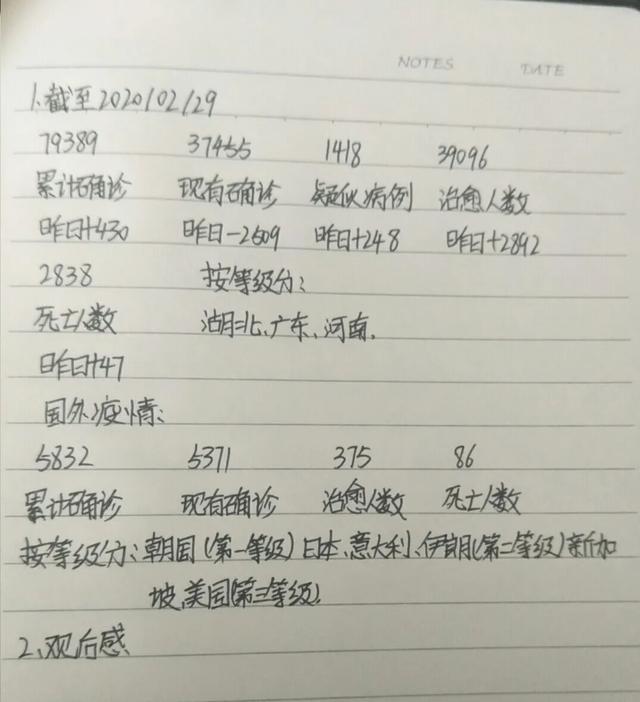 NOTES DATE
1.截至2020/02/29
79389 37455 1418 39096
累计确诊 现有确诊 疑似病例 治愈人数
昨日+430 昨日-2609 昨日+248 昨日+2892
2838 按等级分:
死亡人数 湖北、广东、河南.
昨日+47
国外疫情:
5832 5371 375 86
累计确诊 现有确诊 治愈人数 死亡人数
按等级分:韩国(第一等级)日本、意大利、伊朗(第二等级)新加
坡、美国(第三等级).
2、观后感、